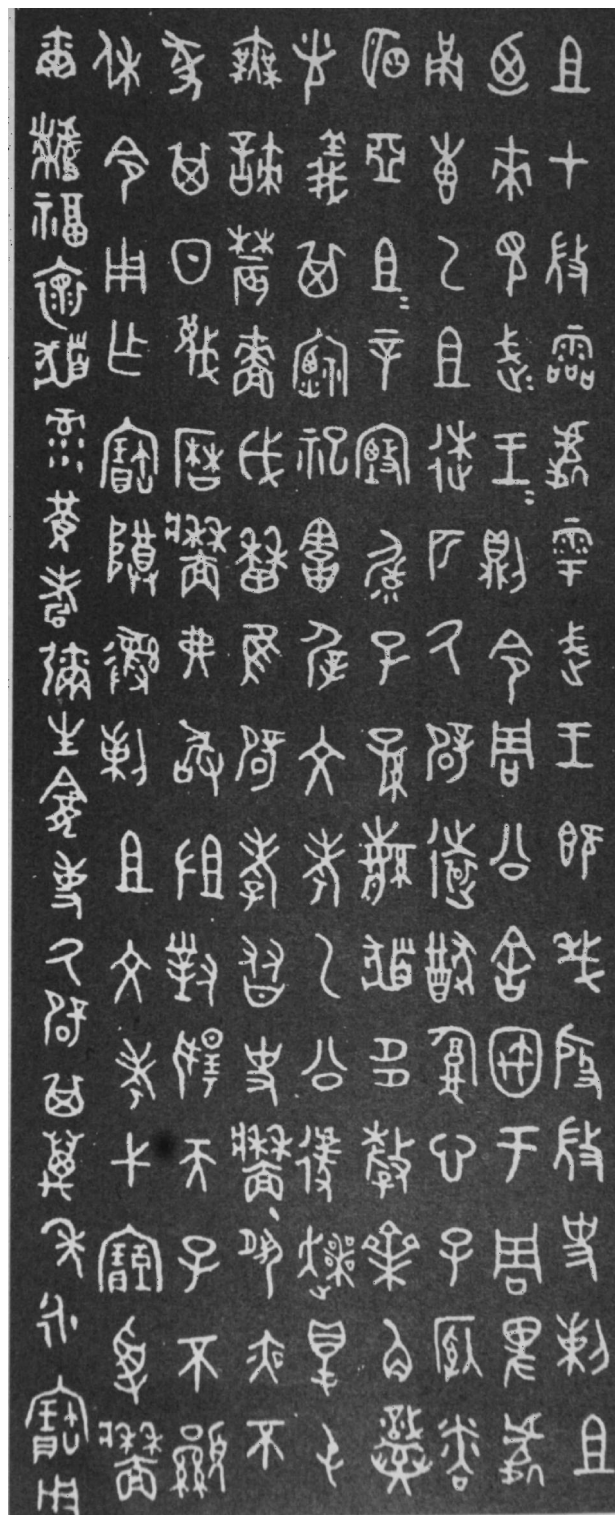 且才微霝處雩武王既𢦏殷微史剌且
迺來見武=王=則令周公舍㝢于周卑處
甬叀乙且逨匹氒辟遠猷腹心子𠭯粦
明亞且=辛𡫳毓子孫繁猶多孷齊角熾
光義其禋祀害屖文考乙公遽爽得屯
無諫農嗇戉歷隹辟孝友史牆夙夜不
㒸其日蔑曆牆弗敢沮對揚天子不顯
休令用乍寶尊彝剌且文考弋寶受牆
爾福褱猶彔黃耇彌生龕事氒辟其萬年永寶用